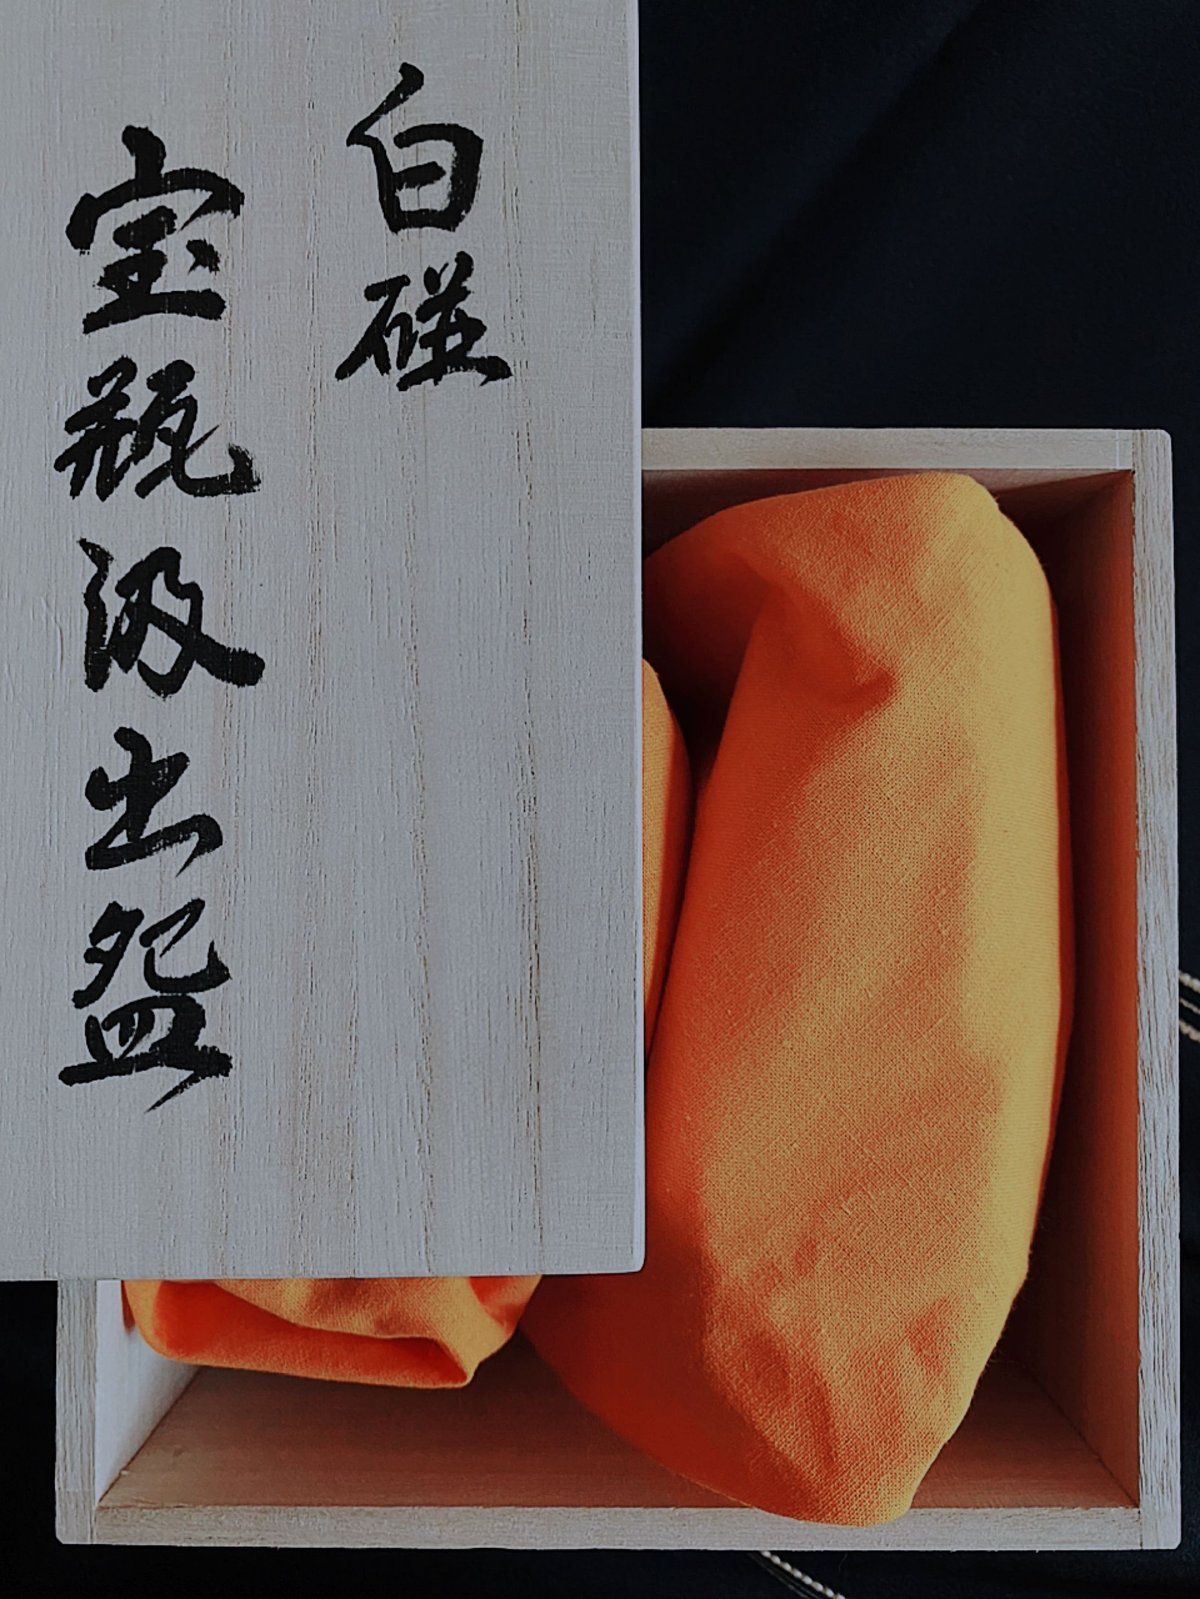 白磁
宝瓶汲出盌